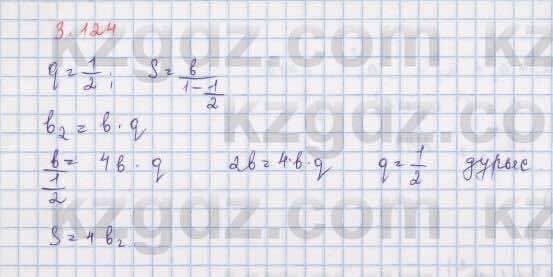 3.124
q = 1/2; S = b/(1 - 1/2)
b₂ = b · q
b/(1/2) = 4b · q 2b = 4·b·q q = 1/2 дұрыс
S = 4b₂.
kzgdz.com kzgdz.com
kzgdz.com kzgdz.com